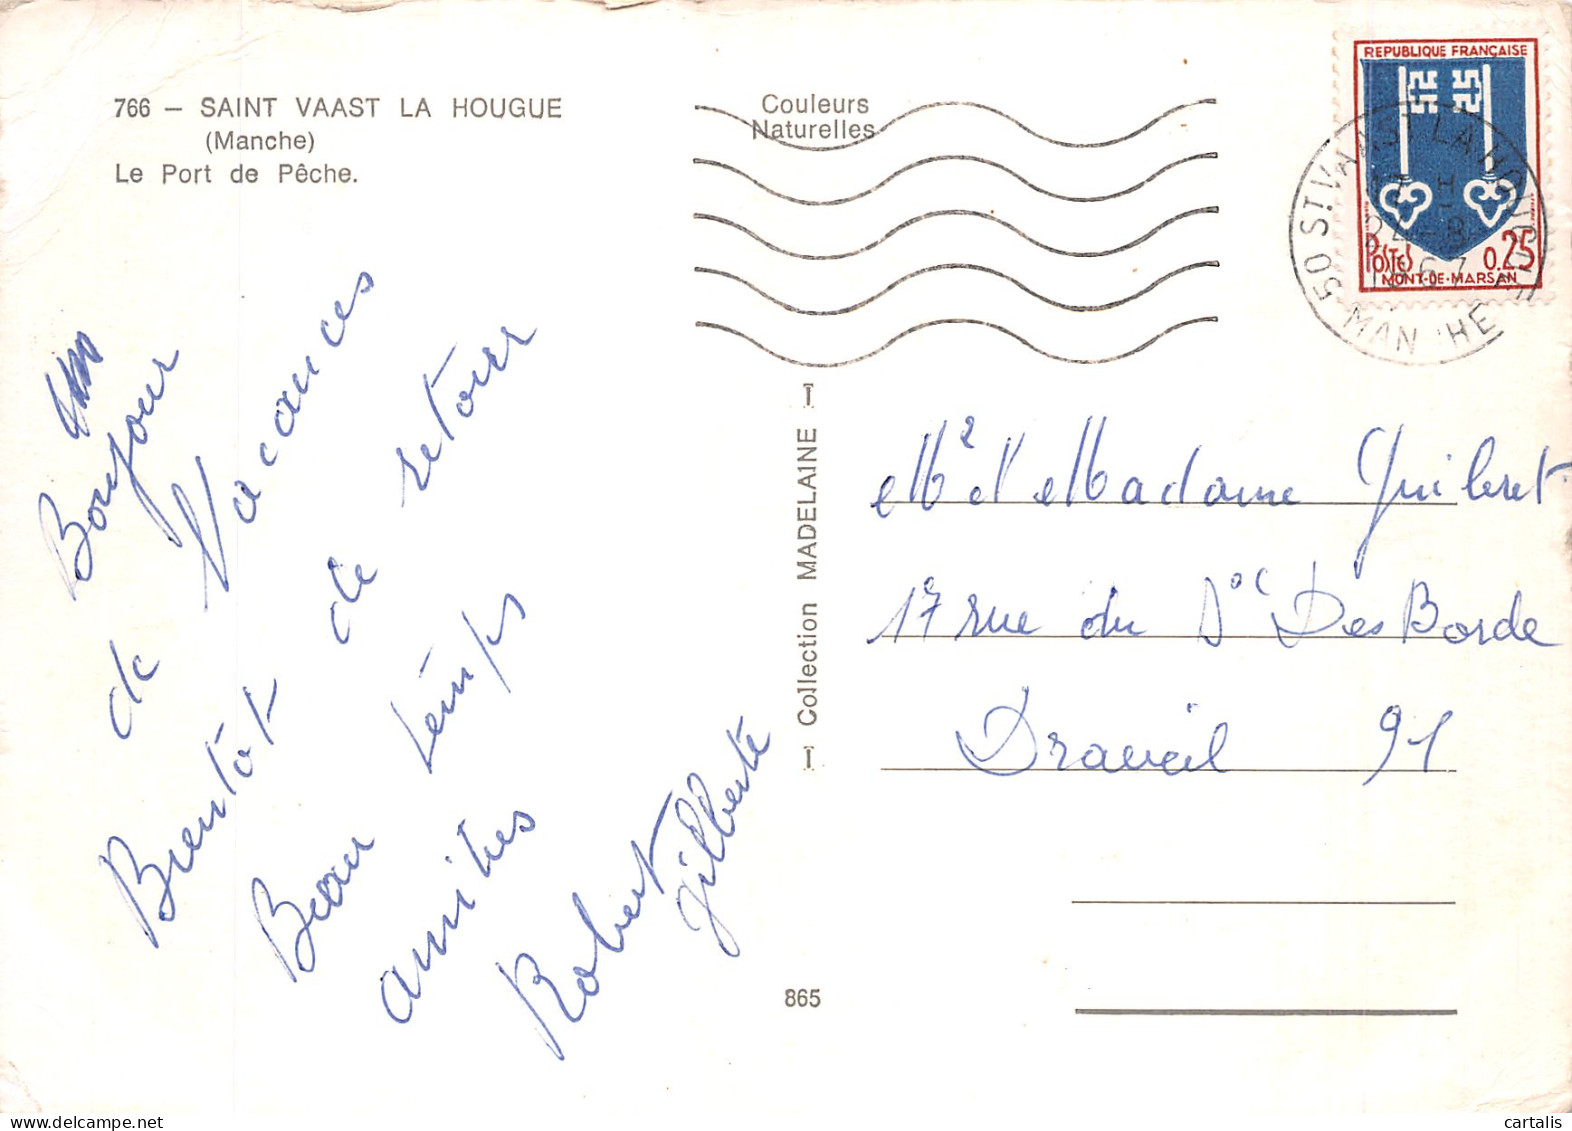 766 – SAINT VAAST LA HOUGUE
(Manche)
Le Port de Pêche.
Couleurs
Naturelles
REPUBLIQUE FRANÇAISE
POSTES 0.25
MONT-DE-MARSAN
50 ST VAAST LA HOUGUE
MANCHE
24-8
1967
Bonjour
de Vacances
Bientot de retour
Beau temps
amities
Robert
gilberte
Collection MADELAINE
Mr et Madame Guilleret
17 rue du Doc Des Borde
Draveil 91
865
cartalis